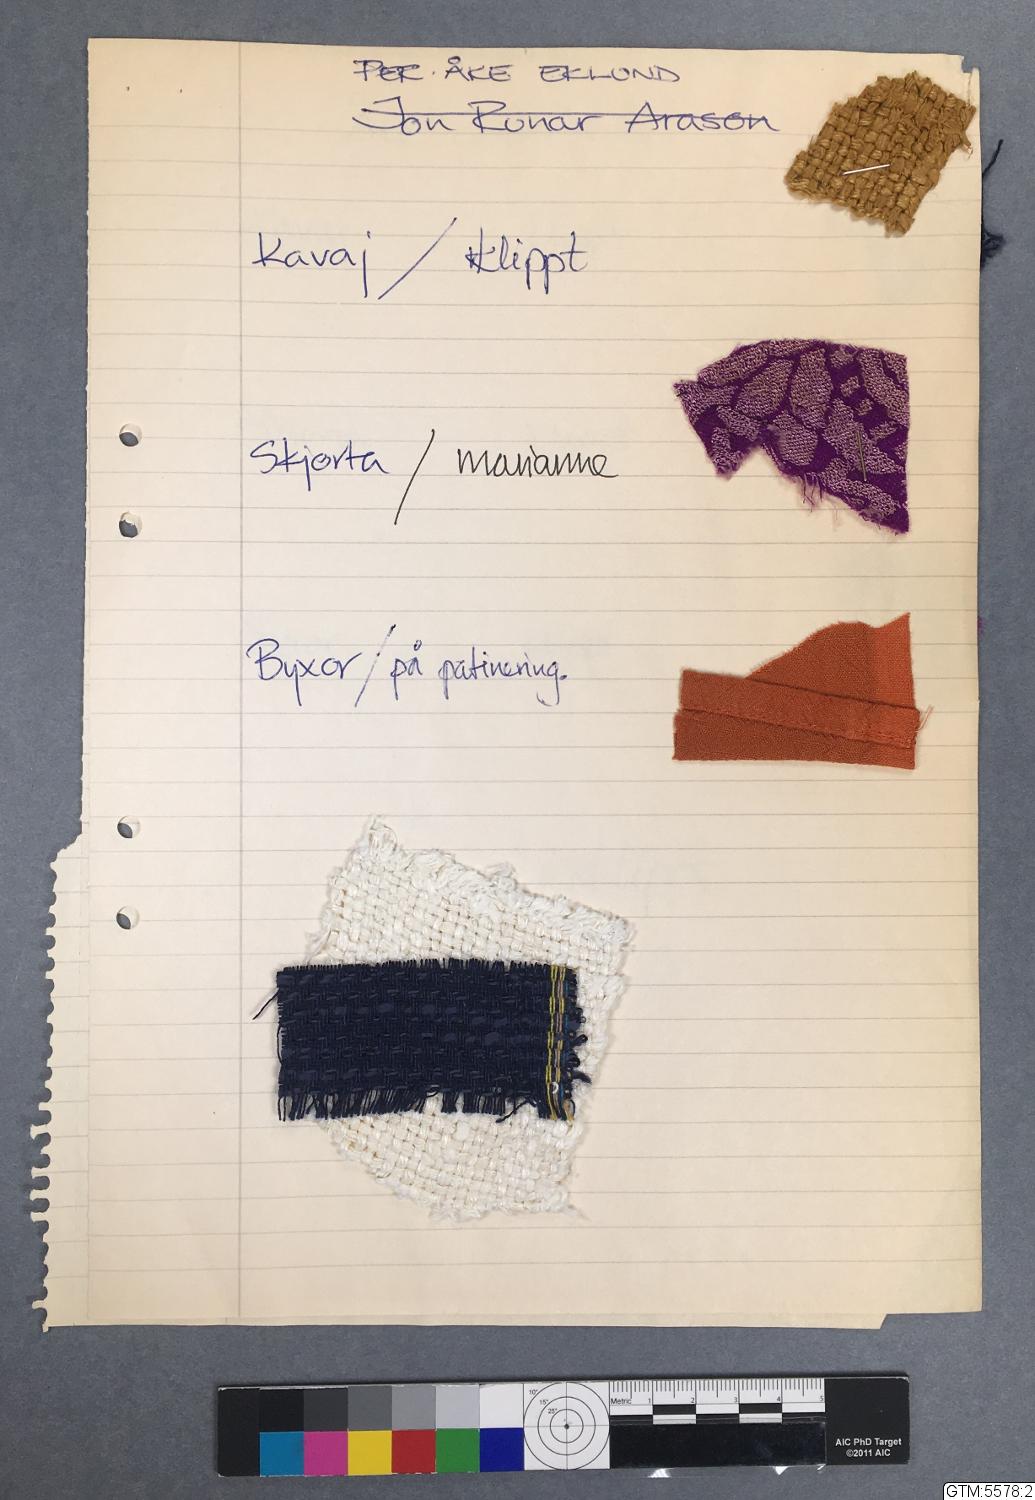 PER-ÅKE EKLUND
Jon Runar Arason
Kavaj / klippt
Skjorta / marianne
Byxor / på patinering.
10°
15°
25°
Metric 1 2 3 4 5
AIC PhD Target
©2011 AIC
GTM:5578:2